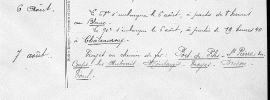 6 Août
Le 68e s'embarque le 6 août, à partir de 8 heures
au Blanc
Le 90e s'embarque le 6 août à partir de 19 heures 40
à Châteauroux
7 août
Trajet en chemin de fer: Port de Piles - St Pierre des
Corps - les Aubrais - - Troyes -
Toul